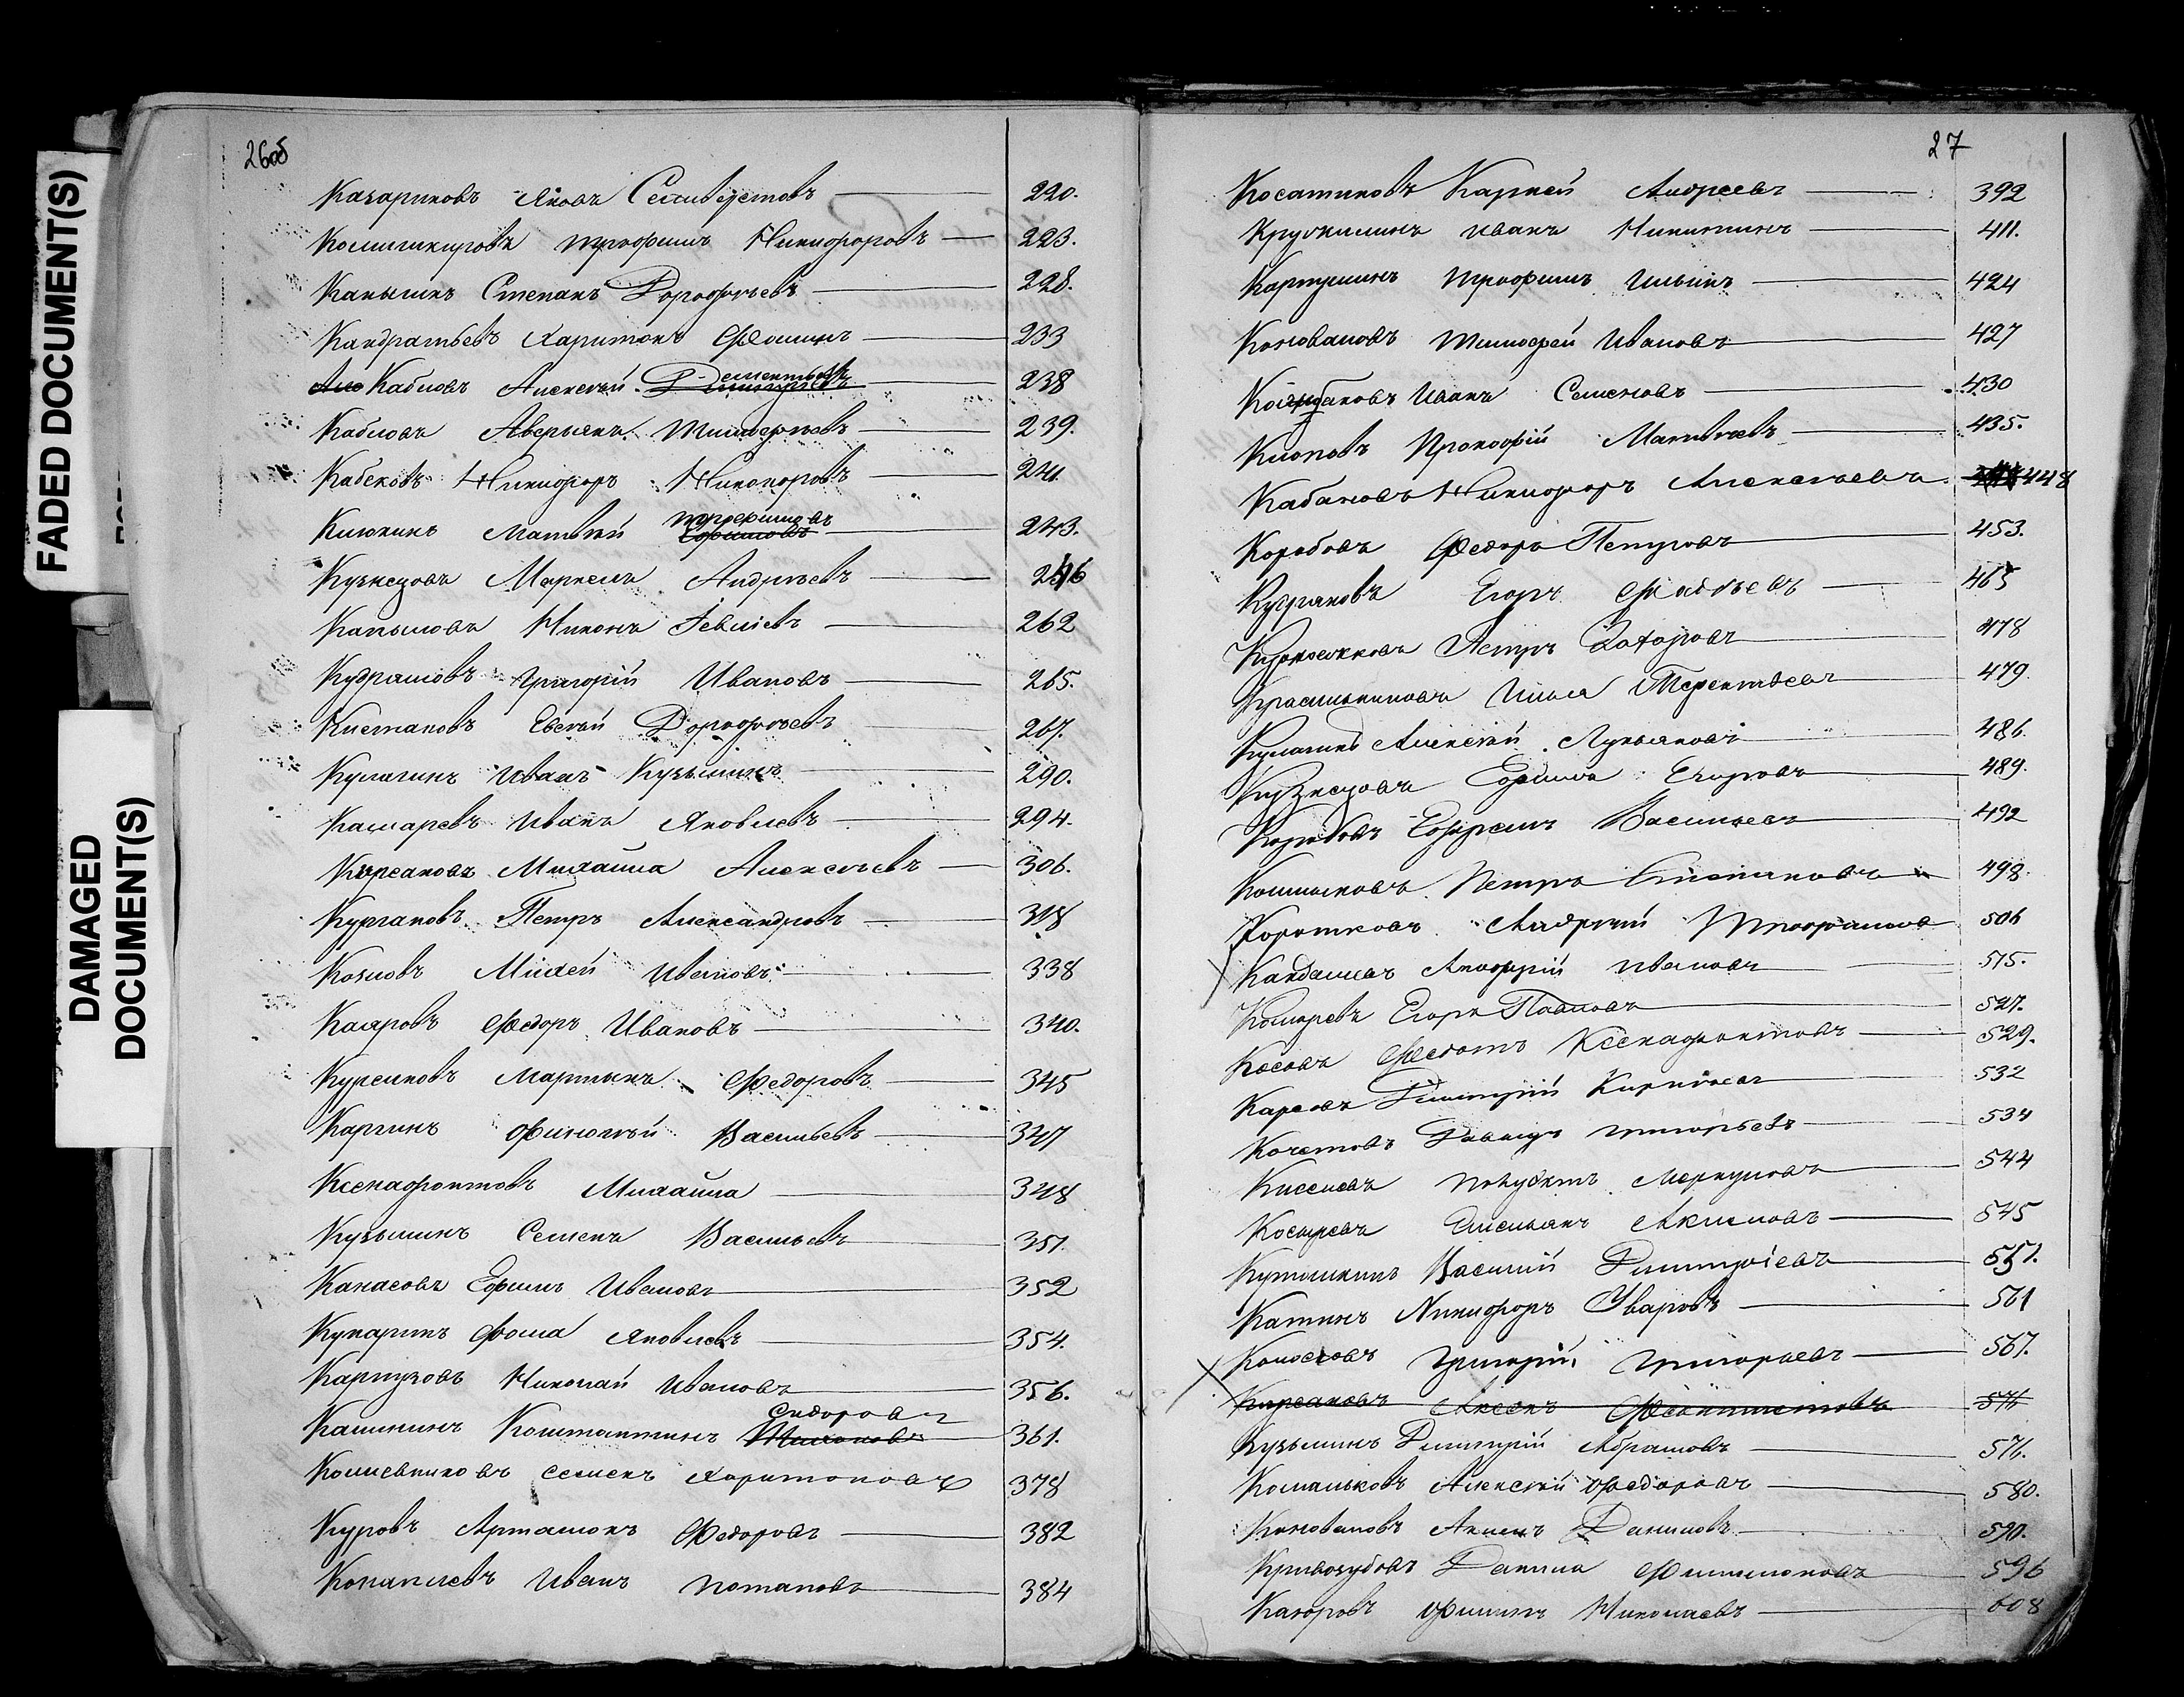 FADED DOCUMENT(S)
DAMAGED
DOCUMENT(S)
26об
Казариновъ Яковъ Селиверстовъ 220.
Трофимъ Никифоровъ 223.
Канышинъ Степанъ Дорофѣевъ 228.
Кандратьевъ Харитонъ Фоминъ 233
Кабловъ Алексѣй Дементьевъ 238
Кабловъ Аверьянъ Тимофѣевъ 239.
Кабековъ Никифоръ Никоноровъ 241
Клюкинъ Матвѣй Трофимовъ 243.
Кузнецовъ Маркелъ Андрѣевъ 246
Капыловъ Никонъ Іевлевъ 262
Кудрашовъ Григорій Ивановъ 265.
Кистановъ Евсѣй Дорофѣевъ 267.
Кулагинъ Иванъ Кузьминъ 290.
Камаревъ Иванъ Яковлевъ 294.
Кирсановъ Михаила Алексѣевъ 306.
Кургановъ Петръ Александровъ 318
Козловъ Михей Ивановъ 338
Каяровъ Федоръ Ивановъ 340.
Мартынъ Федоровъ 345
Каргинъ Финогѣй Васильевъ 347
Ксенафонтовъ Михайла 348
Кузьминъ Семенъ Васильевъ 351.
Канасовъ Ефимъ Ивановъ 352
Купаринъ Фома Яковлевъ 354.
Картузовъ Николай Ивановъ 356.
Калининъ Константинъ Сидоровъ 361.
Семенъ Харитоновъ 378
Куровъ Артамонъ Федоровъ 382
Иванъ Потаповъ 384
27
Косатиковъ Карпей Андреевъ 392
Кручининъ Иванъ Никитинъ 411.
Картушинъ Трофимъ Ильинъ 424
Коноваловъ Тимофей Ивановъ 427
Иванъ Семеновъ 430
Клоповъ Прокофій Матвѣевъ 435.
Кабановъ Никифоръ Алексѣевъ 448
Коробовъ Федоръ Петровъ 453.
Егоръ Фадѣевъ 465
Петръ Захаровъ 478
Красильниковъ Илья Терентьевъ 479.
Кулагинъ Алексѣй Лукьяновъ 486.
Кузнецовъ Ефимъ Егоровъ 489.
Коробовъ Ефремъ Васильевъ 492
Петръ Степановъ 498.
Коротковъ Андрѣй Трофимовъ 506
Кандалевъ Ануфрій Ивановъ 515.
Комаревъ Егоръ Павловъ 527.
Косовъ Федотъ Ксенафонтовъ 529.
Карповъ Дмитрій Карповъ 532
Кочетовъ Давыдъ Григорьевъ 534
Киселевъ Полуектъ Меркуловъ 544
Косыревъ Емельянъ Акимовъ 545
Василій Дмитріевъ 551.
Катинъ Никифоръ Уваровъ 561
Колосовъ Григорій Григорьевъ 567.
Кирсановъ Аксенъ Феоктистовъ 576
Кузьминъ Дмитрій Абрамовъ 576.
Комальковъ Алексѣй Федоровъ 580.
Коноваловъ Акимъ Даниловъ 590.
Кривозубовъ Данила Филимоновъ 596
Каюровъ Филипъ Николаевъ 608